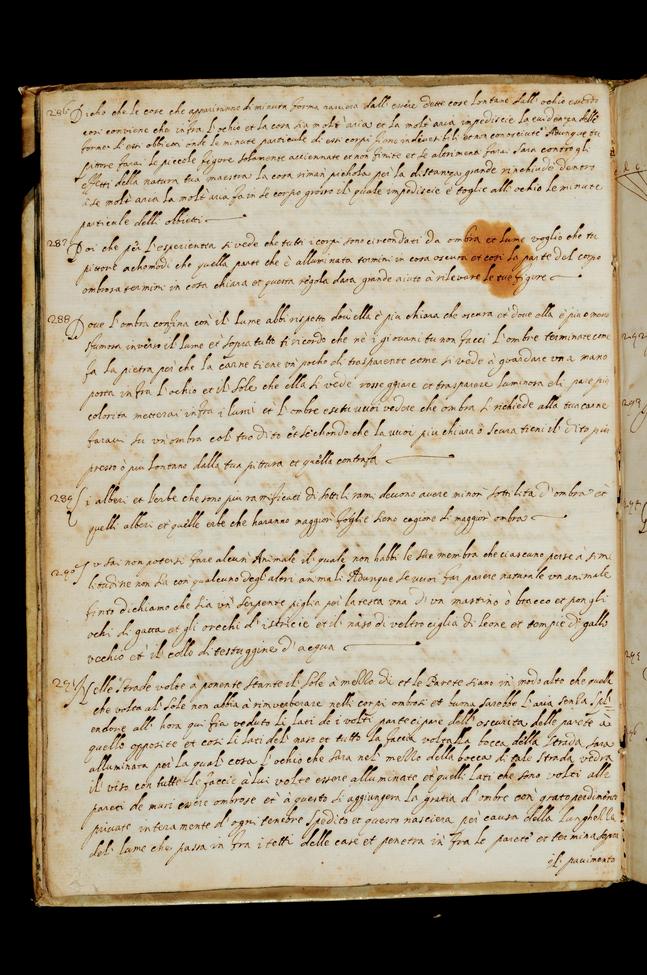 286 Dicho che le cose che appariranno di minuta forma nascera dall' essere dette cose lontane dall' ochio essendo
cosi conviene che infra l'ochio et la cosa sia molt' aria et la molt' aria impediscie la euidenza delle
forme d' essi obbietti onde le minute particule di essi corpi sieno indiscernibili et non conosciute Adunque tu
pittore farai le piccole figure solamente accennate et non finite et se altrimenti farai sara contro gli
effetti della natura tua maestra La cosa riman pichola per la distanza grande rinchiude dentro
a se molt' aria la molt' aria fa in se corpo grosso il quale impediscie e toglie all' ochio le minute
particule delli obbietti
287 Poi che per l'esperientia si vede che tutti i corpi sono circondati da ombra et lume voglio che tu
pittore achomodi che quella parte che è alluminata termini in cosa oscura et cosi la parte del corpo
ombrosa termini in cosa chiara et questa regola dara grande aiuto à rilevare le tue figure
288 Dove l'ombra confina con il lume abbi rispetto dov' ella è piu chiara che oscura et dove ella è piu o meno
fumosa inverso il lume et sopra tutto ti ricordo che ne i giovani tu non facci l'ombre terminate come
fa la pietra poi che la carne tiene un pocho di trasparente come si vede à guardare una mano
posta infra l'ochio et il sole che ella si vede rosseggiare et trasparere luminosa et la parte piu
colorita metterai infra i lumi et l'ombre et se tu vuoi vedere che ombra si richiede alla tua carne
farai su un' ombra col tuo dito et sechondo che la vuoi piu chiara ò scura tieni il dito piu
presso ò piu lontano dalla tua pittura et quella contrafa
289 Gli alberi et l'erbe che sono piu ramificati di sottili rami devono avere minor sottilita d'ombra et
quelli alberi et quelle erbe che haranno maggior foglie sieno cagione di maggior ombra
290 Tu sai non potersi fare alcun Animale il quale non habbi le sue membra che ciascuno per se a simi
litudine non sia con qualcuno degl' altri animali Adunque se vuoi far parere naturale un animale
finto dichiamo che sia un serpente piglia per la testa una d' un mastino ò bracco et pongli
ochi di gatta et gli orecchi d' istricie et il naso di veltro ciglia di leone et tempie di gallo
vecchio et il collo di testuggine d' acqua
291 Nelle strade volte à ponente stante il sole à mezzo di et le parete siano in modo alte che quella
che volta al sole non abbia à rinverberare nelli corpi ombrosi et buona sarebbe l'aria senza spl
endore all' hora qui fia veduto li lati de i volti participare dell' oscurita delle parete à
quello opposite et cosi li lati del naso et tutta la faccia volta alla bocca della strada sara
alluminata per la qual cosa l'ochio che sara nel mezzo della bocca di tale strada vedra
il viso con tutte le faccie à lui volte essere alluminate et quelli lati che sono volti alle
pareti de muri essere ombrose et à questo si aggiungera la gratia d' ombre con grato perdimento
private interamente d' ogni tenebre spedito et questo nasciera per causa della lunghezza
del lume che passa infra i tetti delle case et penetra in fra le parete et termina sopra
el pavimento